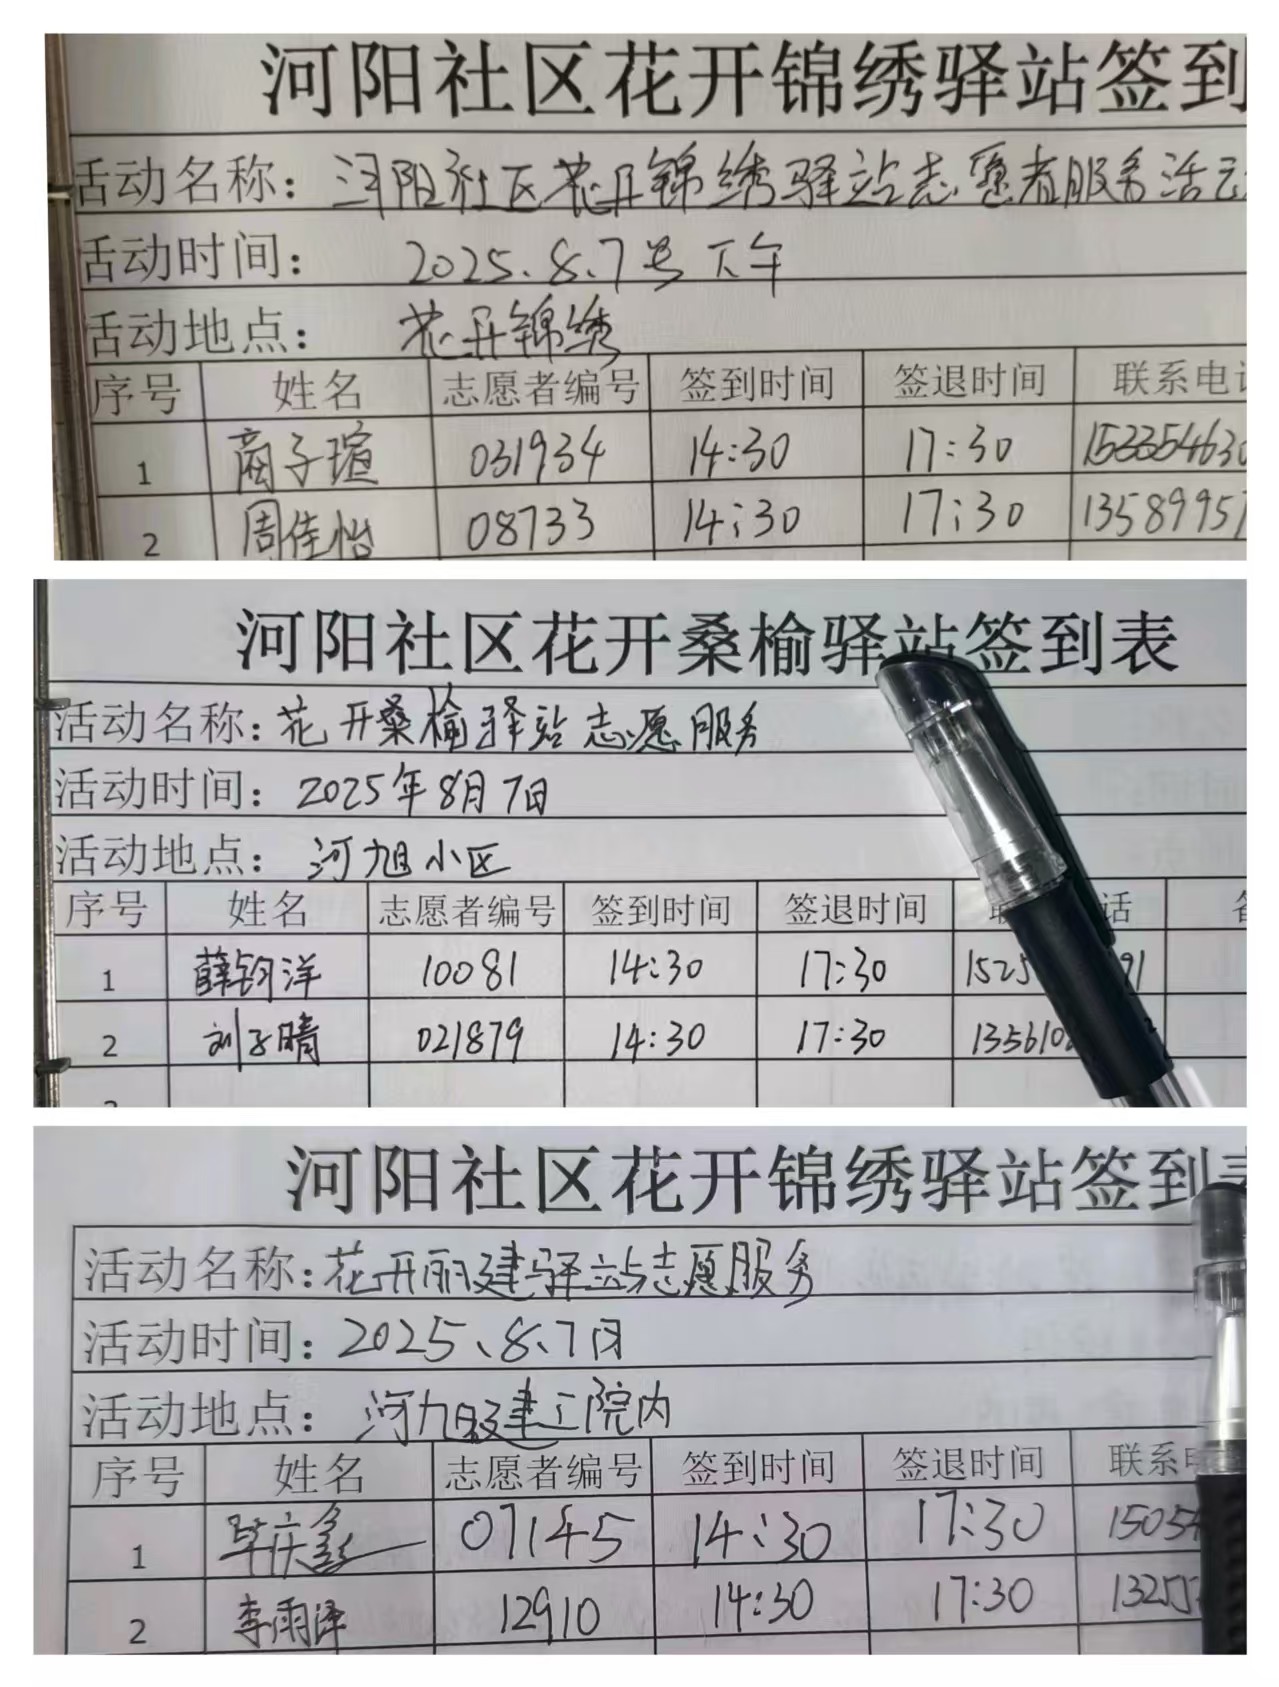 河阳社区花开锦绣驿站签到
活动名称：河阳社区花开锦绣驿站志愿者服务活动
活动时间： 2025.8.7号下午
活动地点： 花开锦绣
序号 姓名 志愿者编号 签到时间 签退时间 联系电话
1 商子瑄 031934 14:30 17:30 152354630
2 周佳怡 08733 14:30 17:30 13589957
河阳社区花开桑榆驿站签到表
活动名称：花开桑榆驿站志愿服务
活动时间：2025年8月7日
活动地点：河旭小区
序号 姓名 志愿者编号 签到时间 签退时间 话
1 薛钧洋 10081 14:30 17:30 1525 91
2 刘子晴 021879 14:30 17:30 135610
河阳社区花开锦绣驿站签到表
活动名称：花开丽建驿站志愿服务
活动时间：2025.8.7日
活动地点： 河九路建工院内
序号 姓名 志愿者编号 签到时间 签退时间 联系电
1 07145 14:30 17:30 15054
2 李雨泽 12910 14:30 17:30 13257